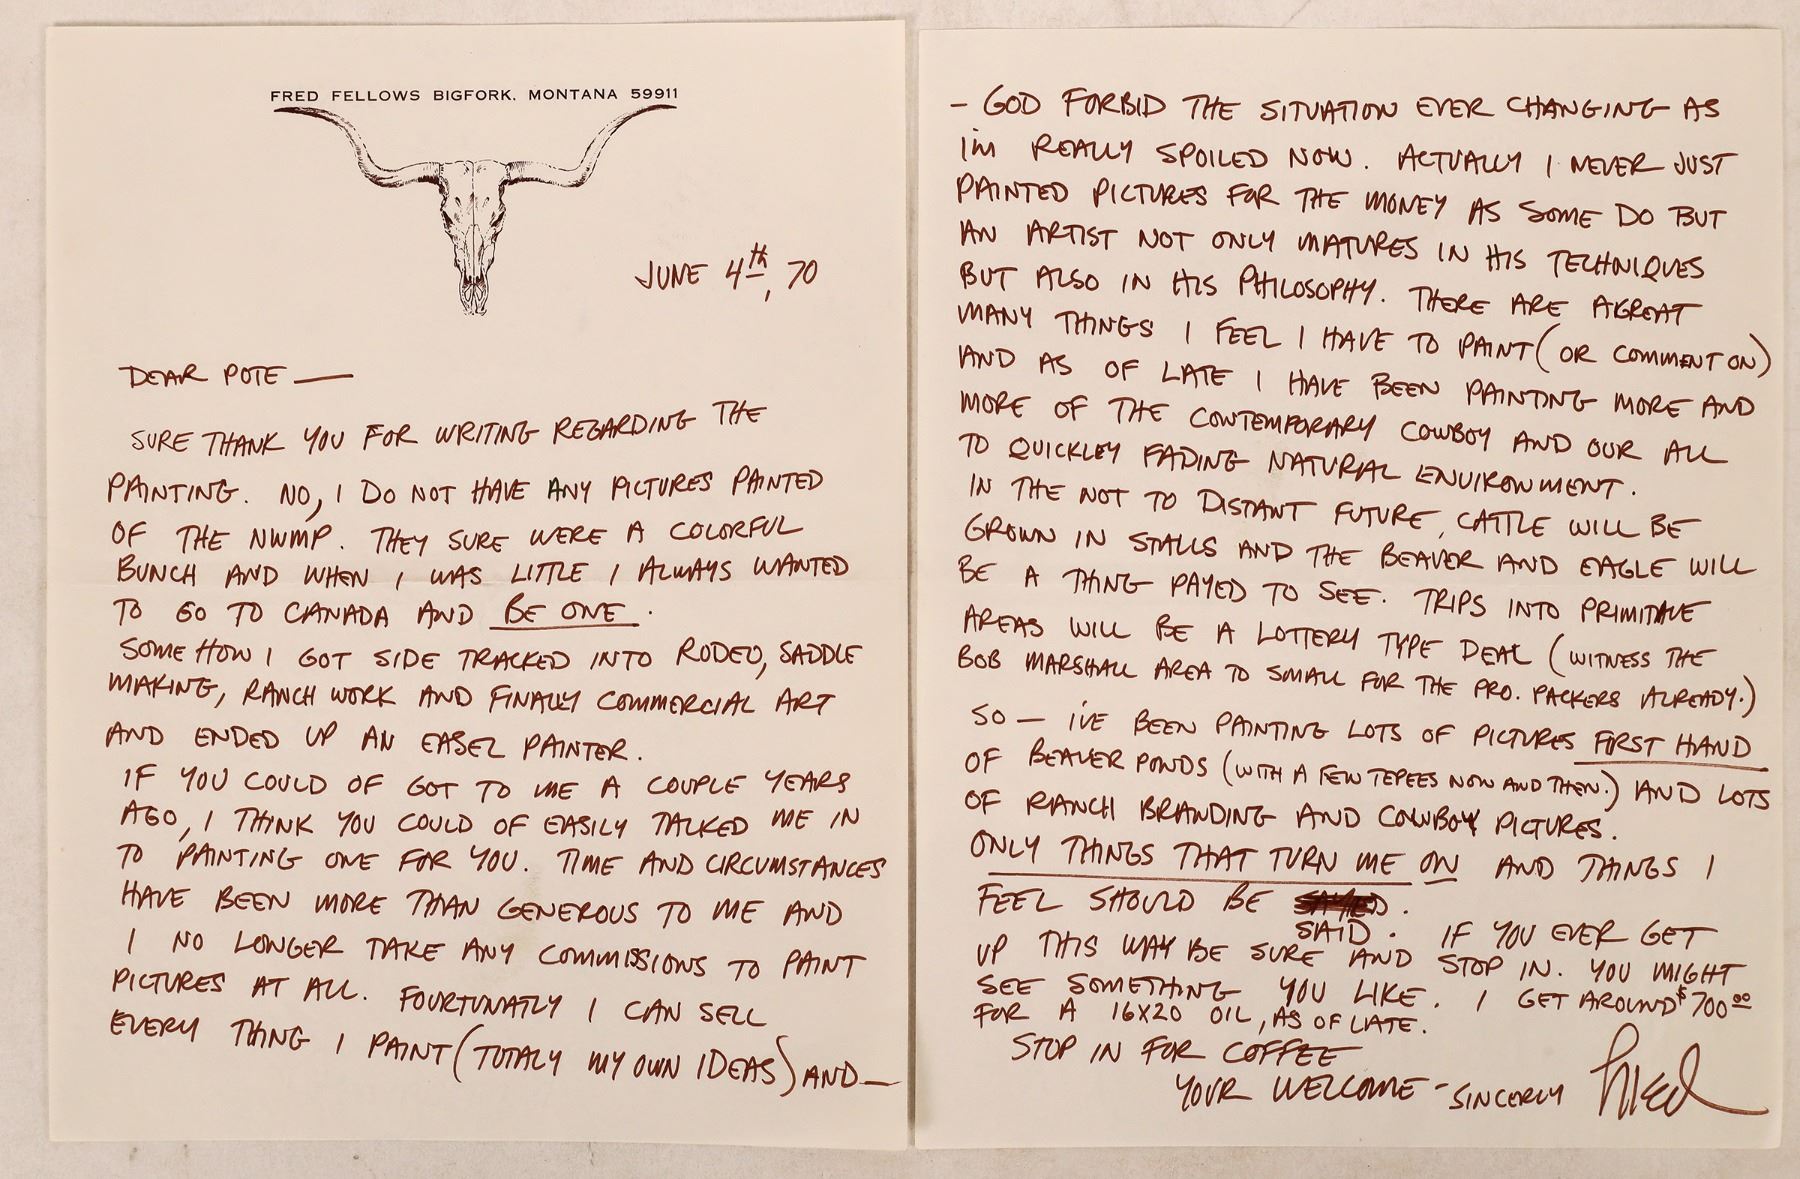 FRED FELLOWS BIGFORK, MONTANA 59911
JUNE 4th, 70
DEAR POTE —
SURE THANK YOU FOR WRITING REGARDING THE
PAINTING. NO, I DO NOT HAVE ANY PICTURES PAINTED
OF THE NWMP. THEY SURE WERE A COLORFUL
BUNCH AND WHEN I WAS LITTLE I ALWAYS WANTED
TO GO TO CANADA AND BE ONE.
SOMEHOW I GOT SIDE TRACKED INTO RODEO, SADDLE
MAKING, RANCH WORK AND FINALLY COMMERCIAL ART
AND ENDED UP AN EASEL PAINTER.
IF YOU COULD OF GOT TO ME A COUPLE YEARS
AGO, I THINK YOU COULD OF EASILY TALKED ME IN
TO PAINTING ONE FOR YOU. TIME AND CIRCUMSTANCES
HAVE BEEN MORE THAN GENEROUS TO ME AND
I NO LONGER TAKE ANY COMMISSIONS TO PAINT
PICTURES AT ALL. FOURTUNATLY I CAN SELL
EVERY THING I PAINT (TOTALY MY OWN IDEAS) AND —
— GOD FORBID THE SITUATION EVER CHANGING AS
I'M REALLY SPOILED NOW. ACTUALLY I NEVER JUST
PAINTED PICTURES FOR THE MONEY AS SOME DO BUT
AN ARTIST NOT ONLY MATURES IN HIS TECHNIQUES
BUT ALSO IN HIS PHILOSOPHY. THERE ARE A GREAT
MANY THINGS I FEEL I HAVE TO PAINT (OR COMMENT ON)
AND AS OF LATE I HAVE BEEN PAINTING MORE AND
MORE OF THE CONTEMPORARY COWBOY AND OUR ALL
TO QUICKLEY FADING NATURAL ENVIRONMENT.
IN THE NOT TO DISTANT FUTURE, CATTLE WILL BE
GROWN IN STALLS AND THE BEAVER AND EAGLE WILL
BE A THING PAYED TO SEE. TRIPS INTO PRIMITAVE
AREAS WILL BE A LOTTERY TYPE DEAL (WITNESS THE
BOB MARSHALL AREA TO SMALL FOR THE PRO. PACKERS ALREADY.)
SO — I'VE BEEN PAINTING LOTS OF PICTURES FIRST HAND
OF BEAVER PONDS (WITH A FEW TEPEES NOW AND THEN.) AND LOTS
OF RANCH BRANDING AND COWBOY PICTURES.
ONLY THINGS THAT TURN ME ON AND THINGS I
FEEL SHOULD BE
SAID. IF YOU EVER GET
UP THIS WAY BE SURE AND STOP IN. YOU MIGHT
SEE SOMETHING YOU LIKE. I GET AROUND $700.00
FOR A 16X20 OIL, AS OF LATE.
STOP IN FOR COFFEE
YOUR WELCOME - SINCERLY Fred